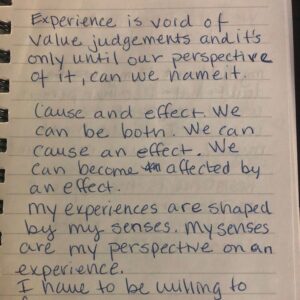 Experience is void of
value judgements and it's
only until our perspective
of it, can we name it.
Cause and effect. We
can be both. We can
cause an effect. We
can become affected by
an effect.
My experiences are shaped
by my senses. My senses
are my perspective on an
experience.
I have to be willing to